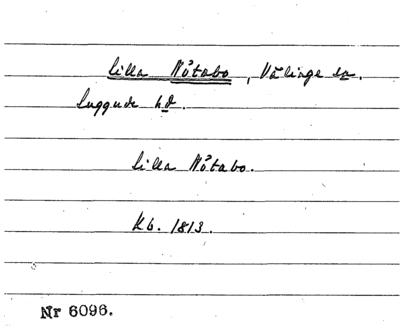 Lilla Nötabo, Välinge sn.
Luggude hd.
Lilla Nötabo.
Kb. 1813.
Nr 6096.